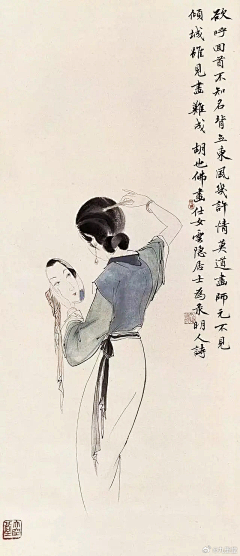 欲呼回首不知名背立東風幾許情莫道畫師元不見
傾城雖見畫難成 胡也佛畫仕女雲隱居士為录明人詩